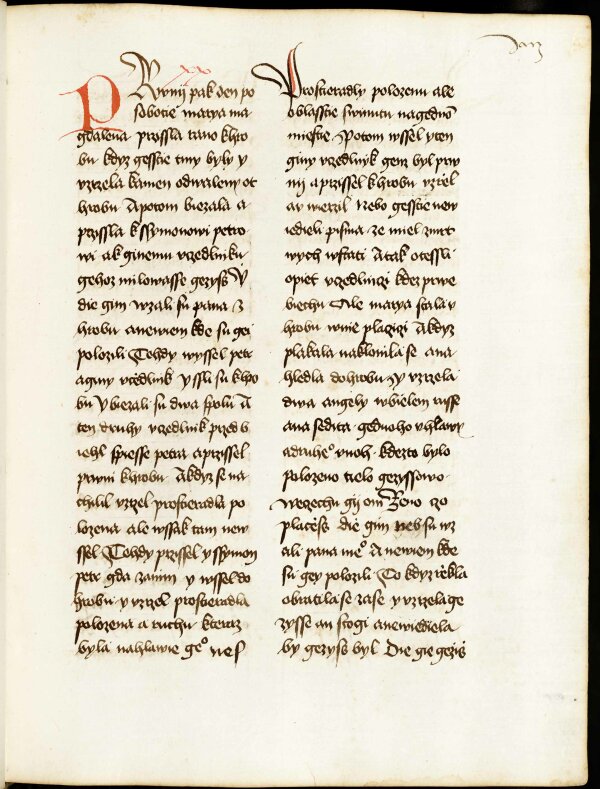 Jan
xx
PRwnij pak den po
sobotie marya ma
gdalena prossla rano khro
bu kdyz gesstie tmy byly y
vzrzela kamen odwaleny ot
hrobu A potom biezala a
przyssla k ssymonowi petro
wi a k ginemu vczedlniku
gehoz milowasse gezyss Y
die gim wzali su pana z
hrobu a newiem kde su gei
polozili Tehdy wyssel petr
a giny vczedlnik y ssli su khro
bu Y biezali su dwa spolu A
ten druhy vczedlnik przed b
iehl spiesse petra a przissel
prwni k hrobu A kdyz se na
chilil vzrzel prostieradla po
lozena ale wssak tam new
ssel Tehdy przissel y ssymon
petr gda za nim y wssel do
hrobu y vzrzel prostieradla
polozena a ruchu kteraz
byla na hlawie geº nes
Prostieradly polozenu ale
oblasstie swinutu na gednō
miestie Potom wssel y ten
giny vczedlnyk genz byl prw
nij a przissel k hrobu vzrzel
az vierzil Nebo gesstie new
iedieli pisma ze miel zmrt
wych wstati A tak otessli
opiet vczedlnizi kdez prwe
biechu Ale marya stala v
hrobu wnie placizi A kdyz
plakala naklonila se a na
hledla do hrobu Y vzrzela
dwa angely w bielem russe
ana sedita gednoho v hlawy
a druheº v noh kdezto bylo
polozeno tielo gezyssowo
wezechu gij oni Zeno czo
placžess die gim neb su wz
ali pana meº A newiem kde
su gey polozili To kdyz rzekla
obratila se zase y vzrzela ge
zysse an stogi a newiediela
by gezyss byl Die gie gezis